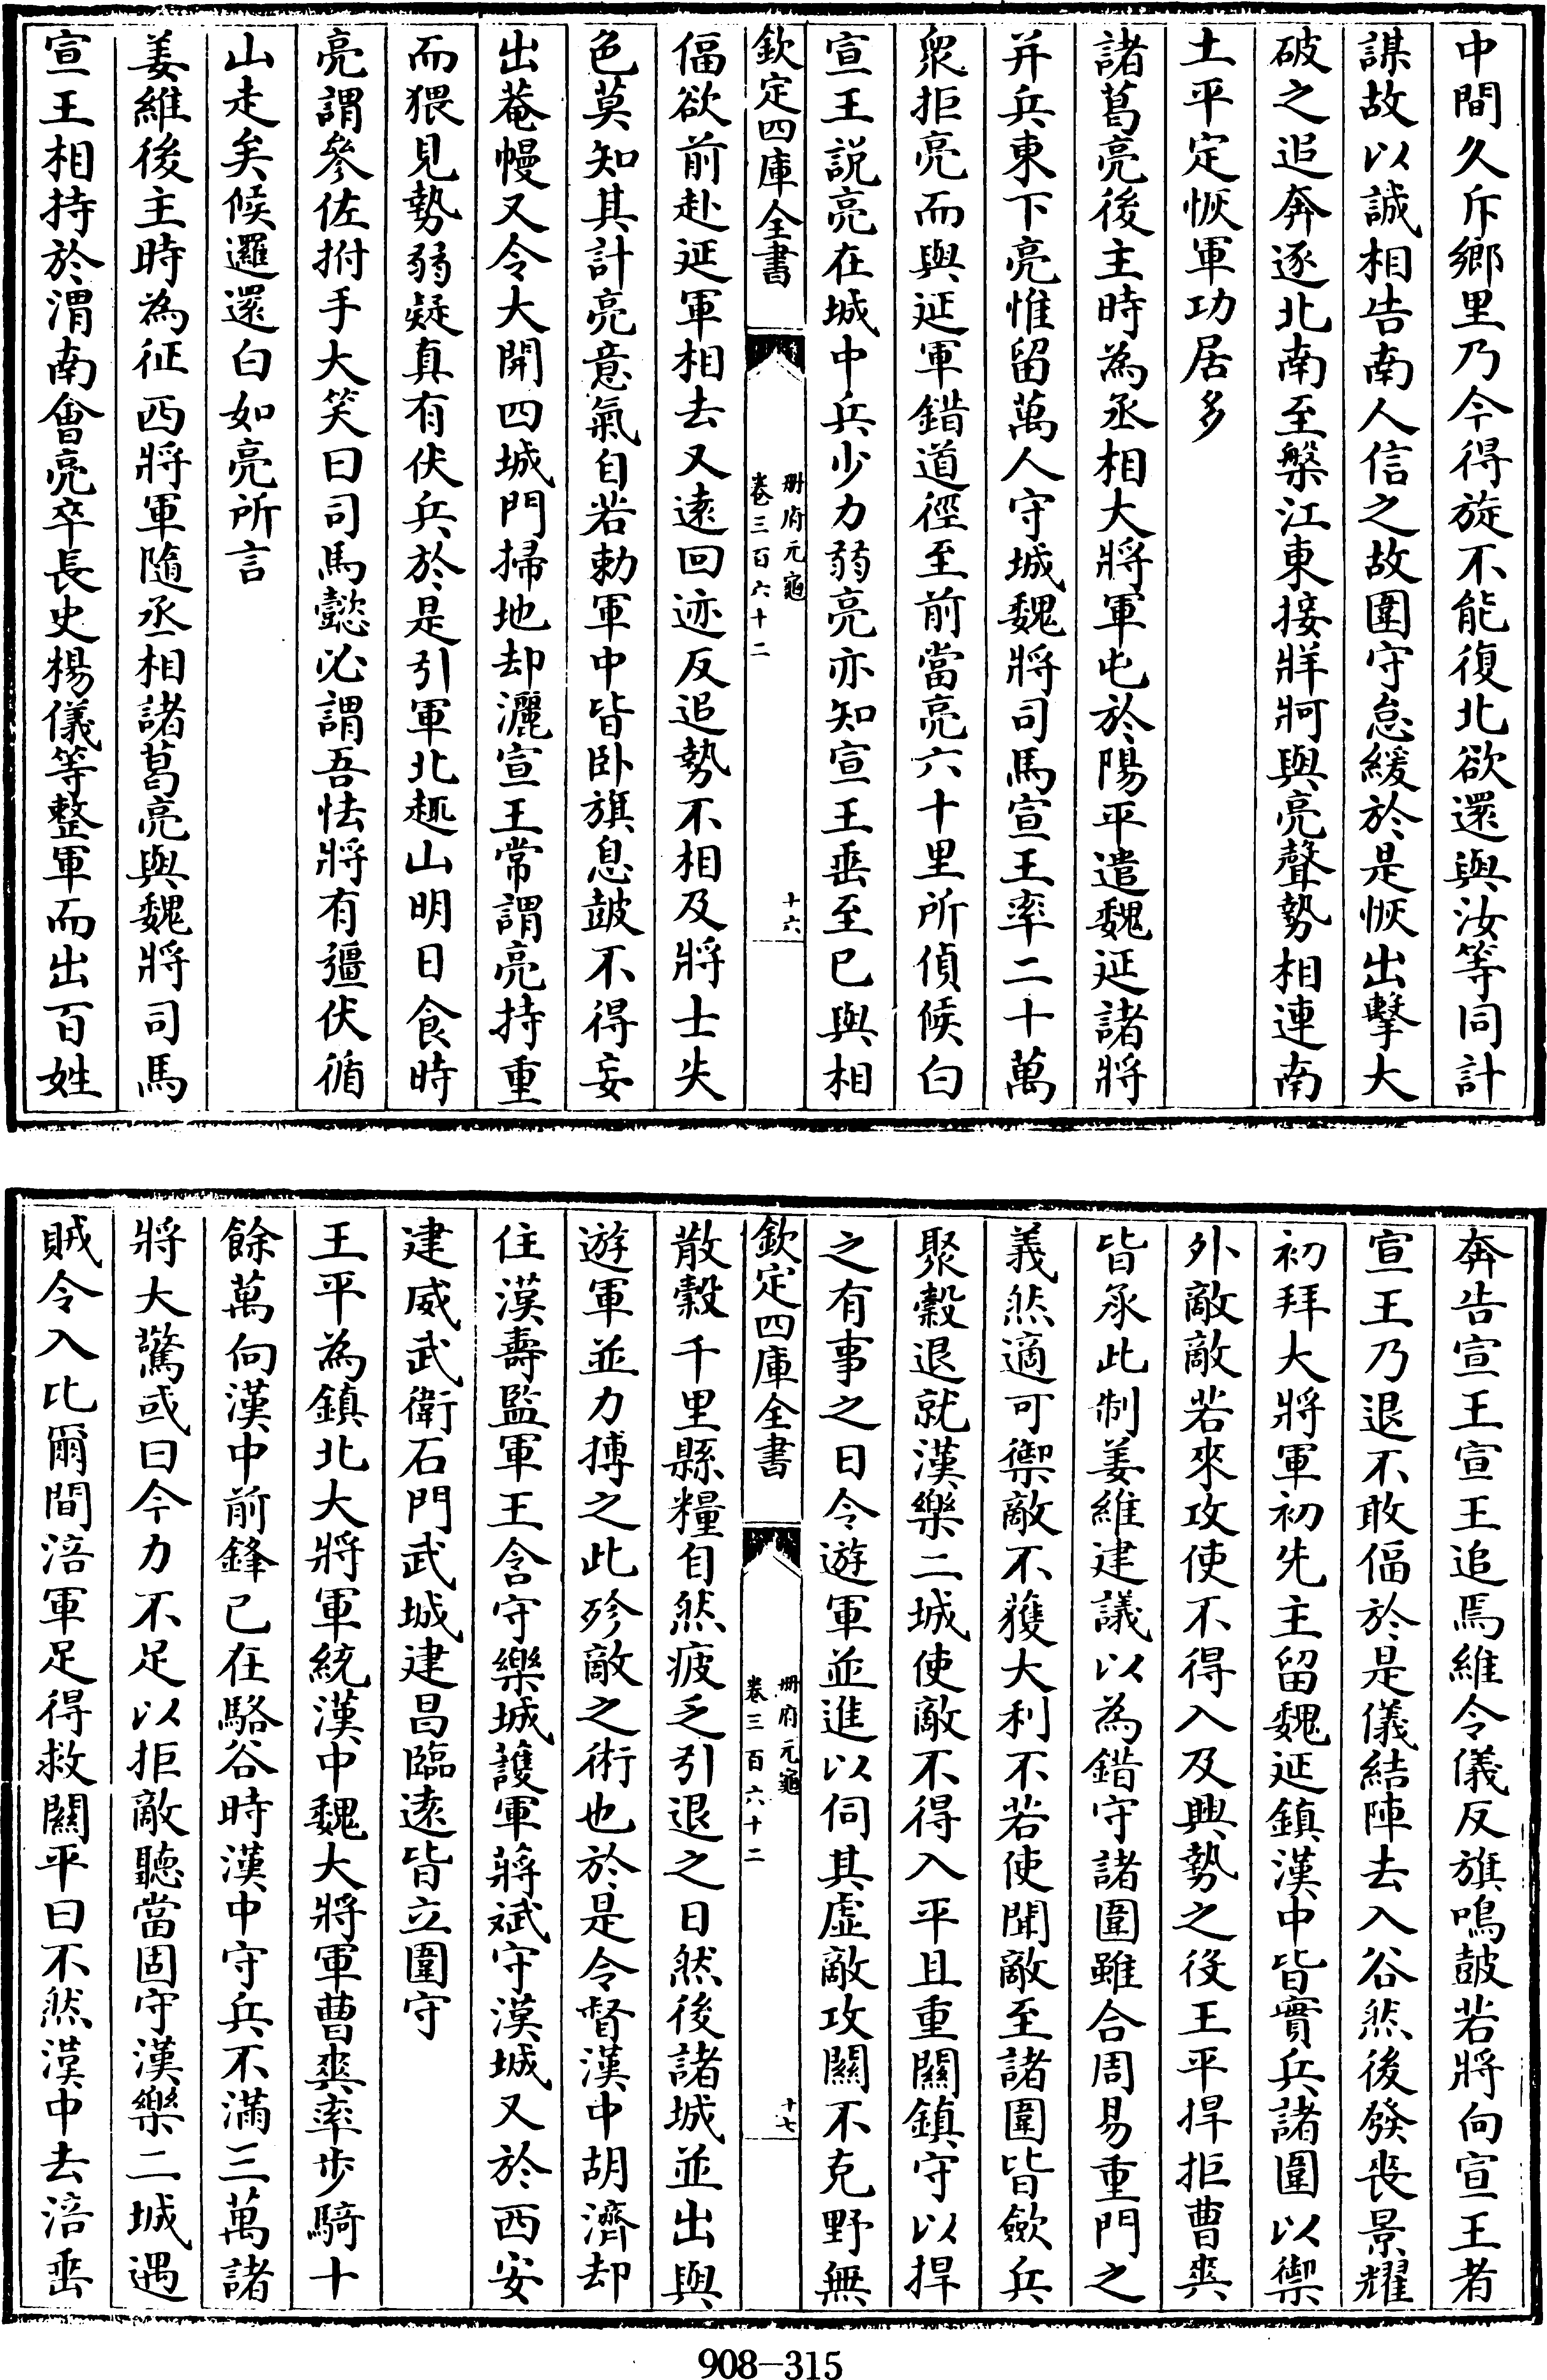 中間久斥鄉里乃今得旋不能復北欲還與汝等同計
謀故以誠相告南人信之故圍守怠緩於是恢出擊大
破之追奔逐北南至槃江東接牂牁與亮聲勢相連南
土平定恢軍功居多
諸葛亮後主時為丞相大將軍屯於陽平遣魏延諸將
并兵東下亮惟留萬人守城魏將司馬宣王率二十萬
衆拒亮而與延軍錯道徑至前當亮六十里所偵候白
宣王説亮在城中兵少力弱亮亦知宣王垂至已與相
欽定四庫全書
冊府元龜
卷三百六十二
十六
偪欲前赴延軍相去又遠回迹反追勢不相及將士失
色莫知其計亮意氣自若勅軍中皆卧旗息鼓不得妄
出菴幔又令大開四城門掃地却灑宣王常謂亮持重
而猥見勢弱疑真有伏兵於是引軍北趣山明日食時
亮謂參佐拊手大笑曰司馬懿必謂吾怯將有彊伏循
山走矣候邏還白如亮所言
姜維後主時為征西將軍隨丞相諸葛亮與魏將司馬
宣王相持於渭南會亮卒長史楊儀等整軍而出百姓
奔告宣王宣王追焉維令儀反旗鳴鼓若將向宣王者
宣王乃退不敢偪於是儀結陣去入谷然後發喪景耀
初拜大將軍初先主留魏延鎮漢中皆實兵諸圍以禦
外敵敵若來攻使不得入及興勢之役王平捍拒曹爽
皆承此制姜維建議以為錯守諸圍雖合周易重門之
義然適可禦敵不獲大利不若使聞敵至諸圍皆斂兵
聚穀退就漢樂二城使敵不得入平且重關鎮守以捍
之有事之日令遊軍並進以伺其虛敵攻關不克野無
欽定四庫全書
冊府元龜
卷三百六十二
十七
散穀千里縣糧自然疲乏引退之日然後諸城並出與
遊軍並力搏之此殄敵之術也於是令督漢中胡濟却
住漢壽監軍王含守樂城護軍蔣斌守漢城又於西安
建威武衛石門武城建昌臨遠皆立圍守
王平為鎮北大將軍統漢中魏大將軍曹爽率步騎十
餘萬向漢中前鋒已在駱谷時漢中守兵不滿三萬諸
將大驚或曰今力不足以拒敵聽當固守漢樂二城遇
賊令入比爾間涪軍足得救關平曰不然漢中去涪垂
908-315